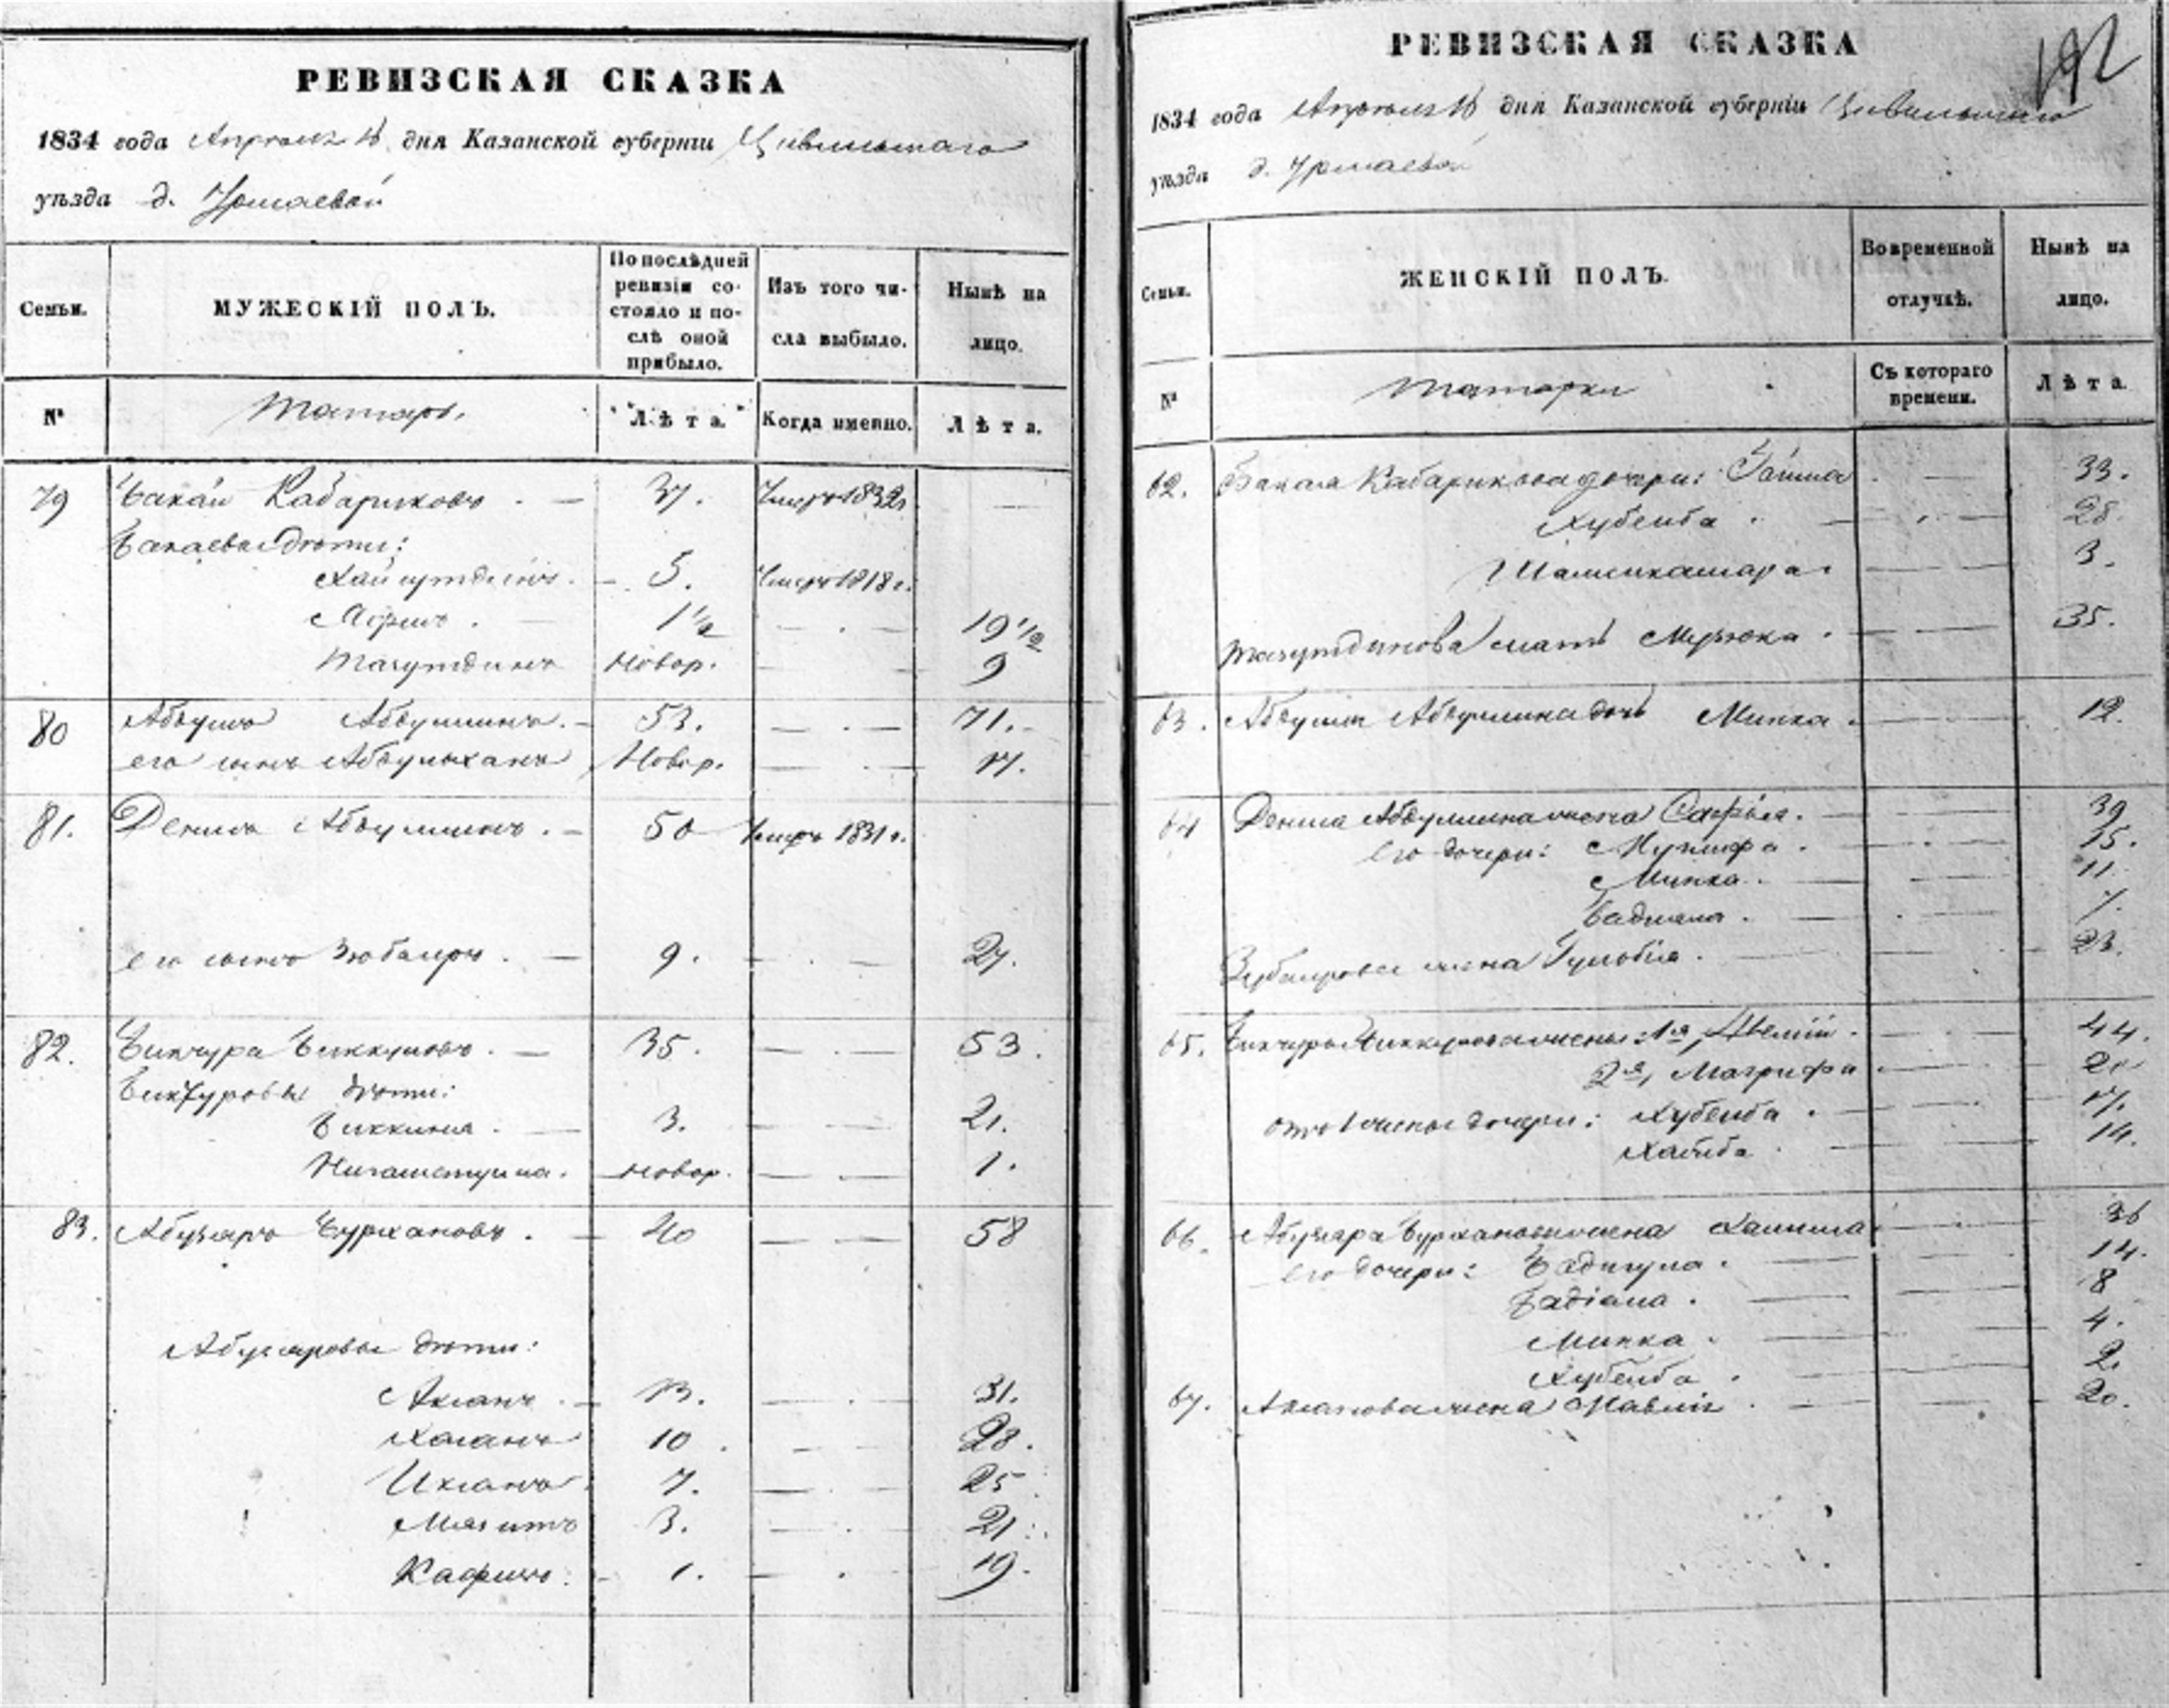 РЕВИЗСКАЯ СКАЗКА
1834 года Апреля 16 дня Казанской губерніи Цивильскаго
уѣзда д. Урмаевой
Семьи.
МУЖЕСКІЙ ПОЛЪ.
По послѣдней ревизіи состояло и послѣ оной прибыло.
Изъ того числа выбыло.
Нынѣ на лицо.
№
Татаръ.
Лѣта.
Когда именно.
Лѣта.
79 Бакай Кабариковъ 37. Умеръ 1832г.
Бакаевы дѣти:
5. Умеръ 1818 г.
1½ 19½
Тазутдинъ Новор. 9
80 Абдулъ Абдуллинъ. 53. 71.
его сынъ Абдулханъ Новор. 17.
81. Абдуллинъ. 50 Умеръ 1831 г.
его сынъ Зюбаиръ. 9. 27.
82. Бикчура Биккуловъ. 35. 53.
Бикчуровы дѣти:
Биккиня. 3. 21.
Нигаметулла. Новор. 1.
83. Абузяръ Бурхановъ. 40 58
Абузяровы дѣти:
Ахсанъ 13. 31.
Хасанъ 10. 28.
Ихсанъ 7. 25
Мязитъ 3. 21
1. 19.
РЕВИЗСКАЯ СКАЗКА
192
1834 года Апреля 16 дня Казанской губерніи Цивильскаго
уѣзда д. Урмаевой
Семьи.
ЖЕНСКІЙ ПОЛЪ.
Во временной отлучкѣ.
Нынѣ на лицо.
№
Татарки
Съ котораго времени.
Лѣта.
62. Бакая Кабарикова дочери: Гайша 33.
Хубейба 28.
Шамсикамара 3.
Тазутдинова мать 35.
63. Абдула Абдуллина дочь Минка. 12.
64 Абдуллина жена Сафія. 39
Его дочери: Мунифа. 15.
Минка. 11.
Бадиана. 7.
Зюбаирова жена 23.
65. Бикчуры Биккулова жены: 1я, 44.
2я, Магрифа 21
отъ 1 жены дочери: Хубейба. 17.
Хабиба 14.
66. Абузяра Бурханова жена Халима 36
его дочери: 14.
Бадіана. 8
Минка. 4.
Хубейба. 2.
67. Ахсанова жена Мавлія 20.